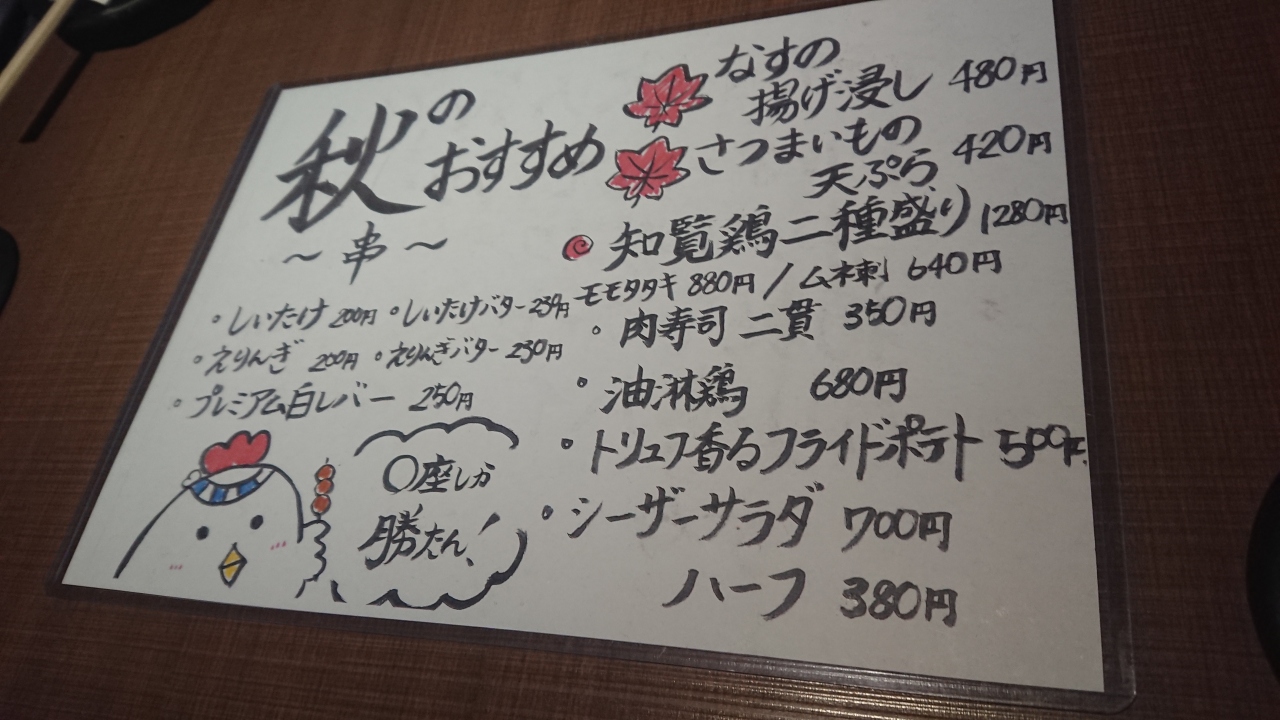 秋の
おすすめ
～串～
・しいたけ 200円 ・しいたけバター 230円
・えりんぎ 200円 ・えりんぎバター 230円
・プレミアム白レバー 250円
〇座しか
勝たん!
なすの
揚げ浸し 480円
さつまいもの
天ぷら 420円
知覧鶏二種盛り 1280円
モモタタキ 880円 / ムネ刺 640円
・肉寿司 二貫 350円
・油淋鶏 680円
・トリュフ香るフライドポテト 500円
・シーザーサラダ 700円
ハーフ 380円